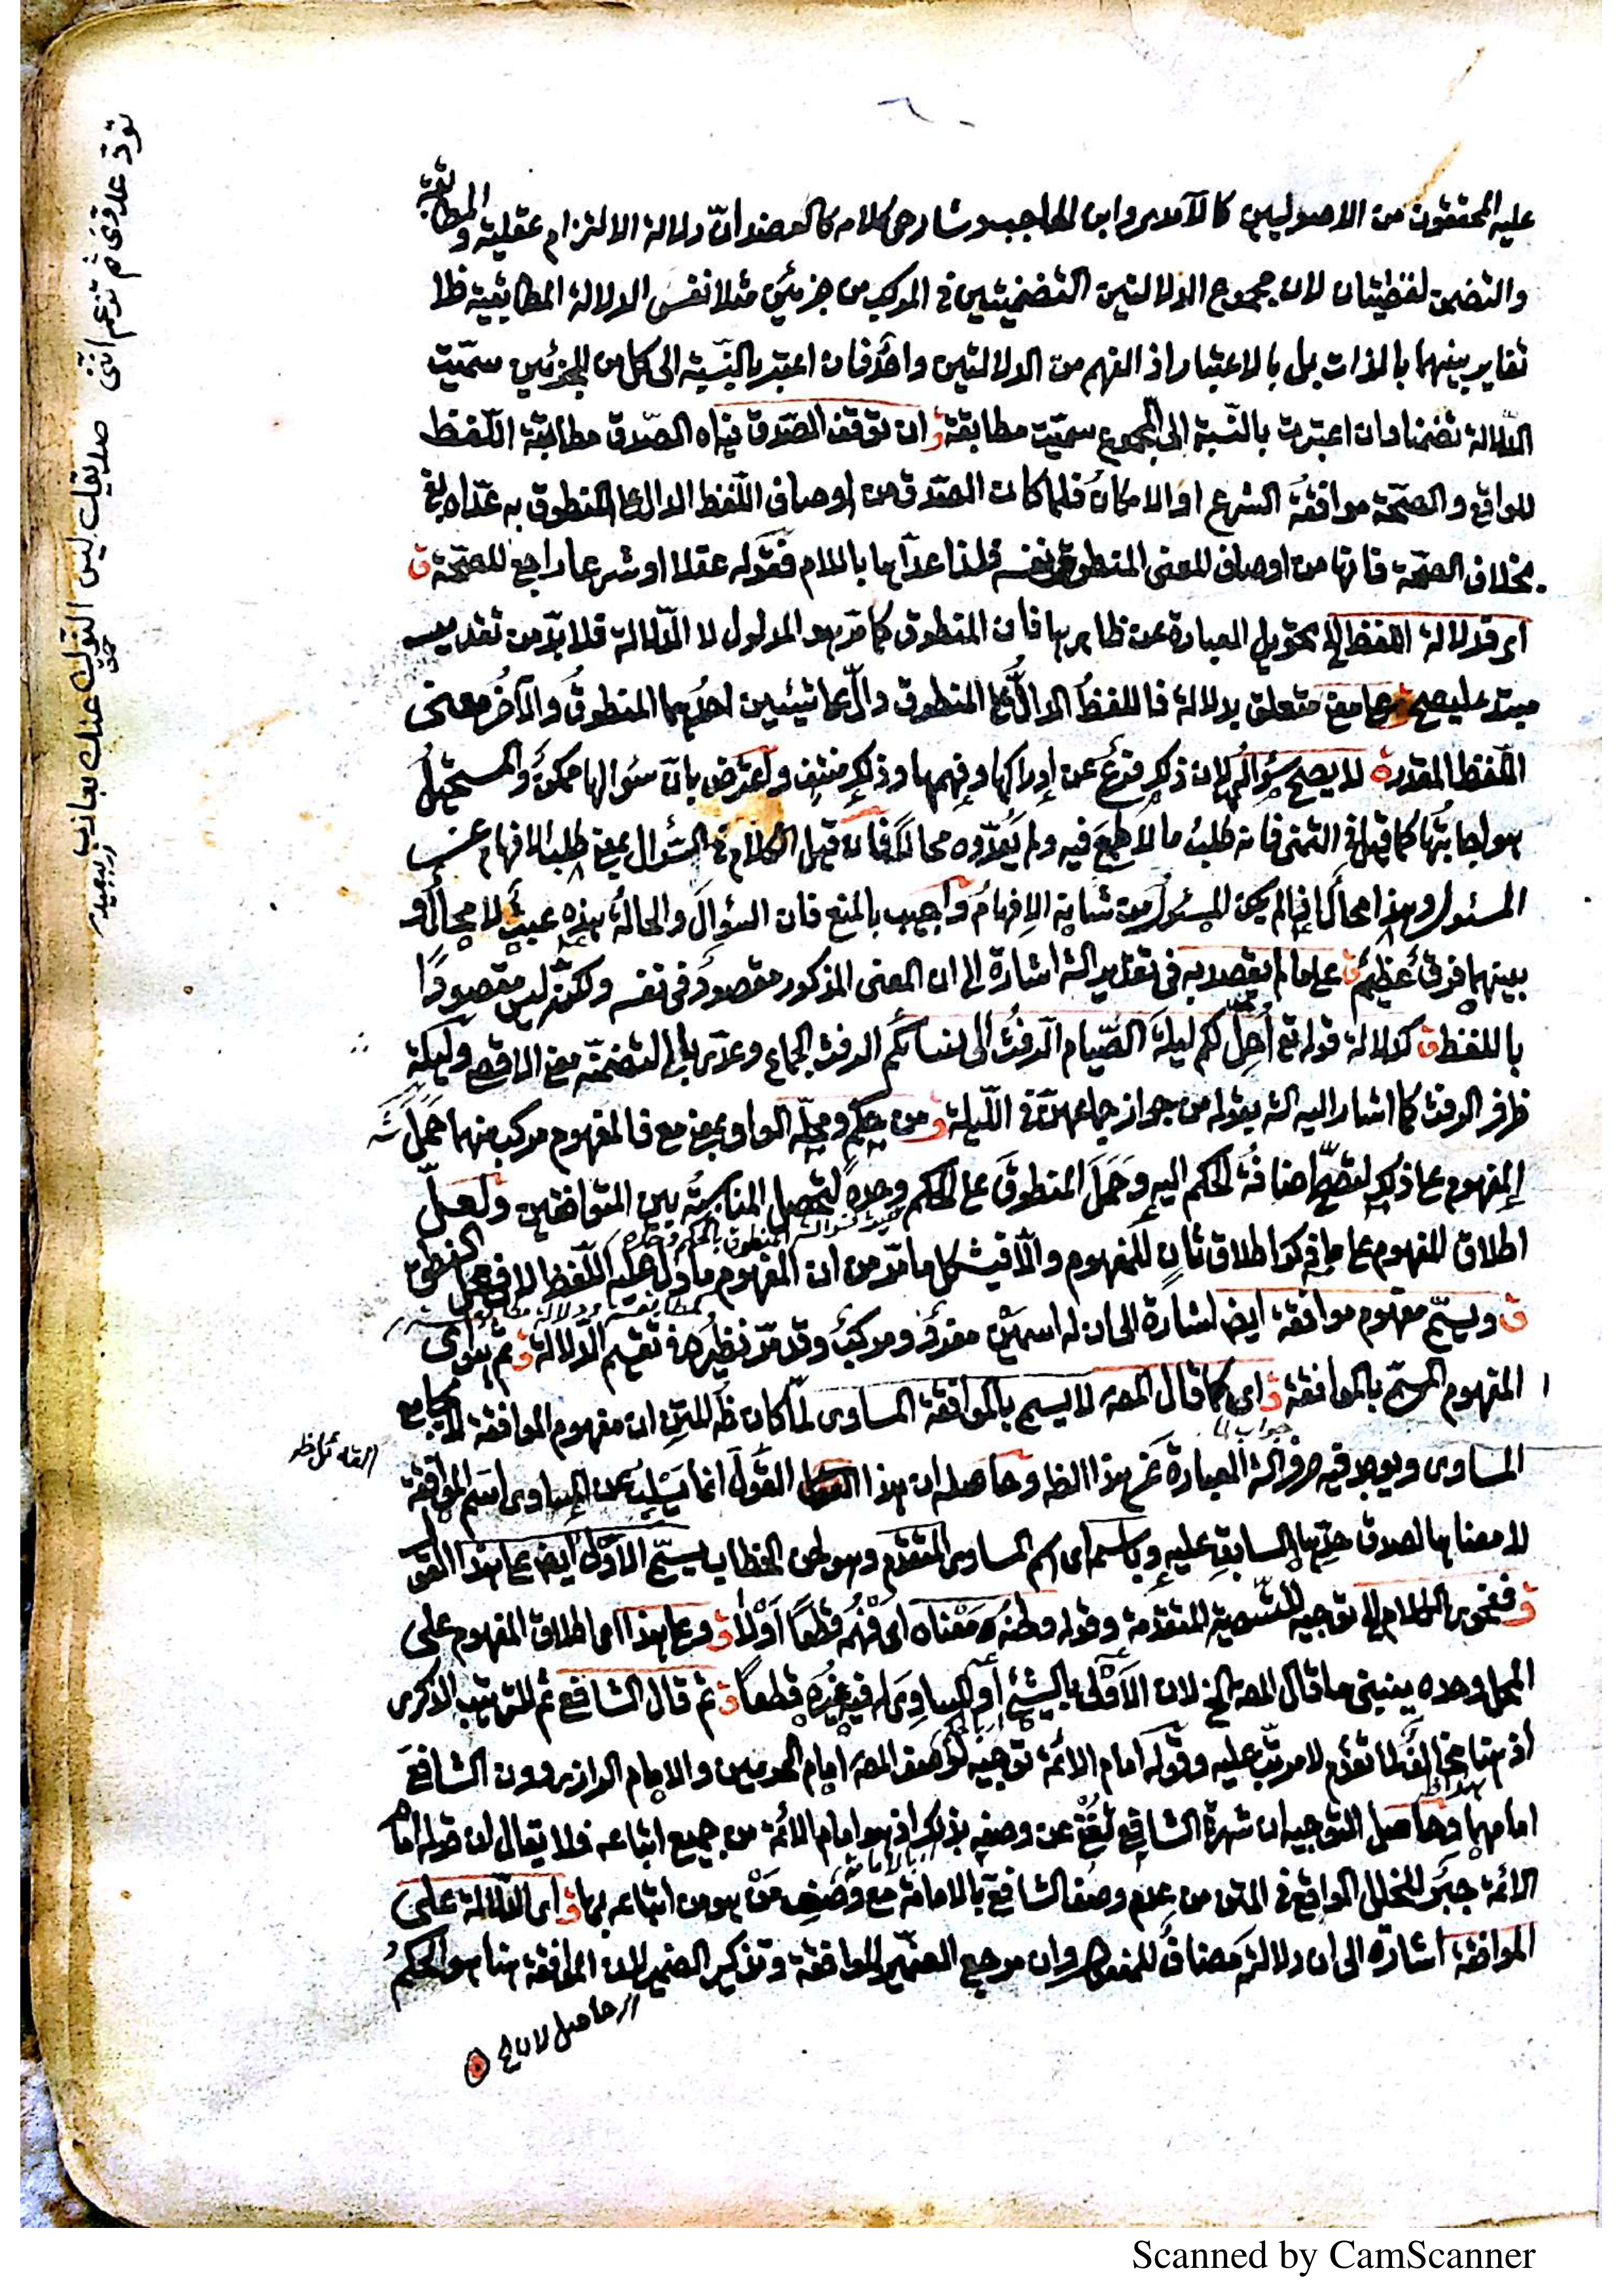 عليه المحققون من الاصوليين كالآمدى وابن الحاجب وشارحى كلامه كالعضد انّ دلالة الالتزام عقلية والمطابقة
والتضمن لفظيتان لان مجموع الدلالتين التضمنيتين فى المركب من جزئين مثلا نفس الدلالة المطابقية فلا
تغاير بينهما بالذات بل بالاعتبار اذ الفهم من الدلالتين واحد فان اعتبر بالنّسبة الى كل من الجزئين سمّيت
الدّلالة تضمنا وان اعتبرت بالنّسبة الى المجموع سمّيت مطابقة ق ان توقف الصّدق فيه اه الصّدق مطابقة اللّفظ
للواقع والصّحة موافقة الشرع او الامكان فلما كان الصّدق من اوصاف اللّفظ الدال على المنطوق به عدّاه بفى
بخلاف الصّحة فانها من اوصاف المعنى المنطوق نفسه فلذا عدّاها باللام فقوله عقلا او شرعا راجع للصّحة ق
اى فدلالة اللفظ الخ تحويل العبارة عن ظاهرها فان المنطوق كما مرّ هو المدلول لا الدّلالة فلا بدّ من تقدير
متعلق بدلالة فاللفظُ الدالّ على المنطوق دالّ على شيئين احدُهما المنطوقُ والآخرُ معنى
اللّفظ المقدر ق لا يصح سؤالُها لان ذلك فرعٌ عن إدراكها وفهمها وذلك منتفٍ واعتُرض بانّ سئوالها ممكنٌ والمستحيلُ
هو اجابتُها كما قيل فى التمنى فانه طلبُ ما لا طمعَ فيه ولم يَعُدّوه محالا فان قيل الكلام فى السّؤال بمعنى طلب الافهام من
المسئول وهذا محالٌ اذا لم يكن المسئول من شانه الإفهامُ واُجيب بالمنع فان السؤالَ والحالةُ هذه عبثٌ لا محالٌ و
بينهما فرقٌ عظيمٌ ق على ما لم يقصد به فى تقدير الشه اشارة الى ان المعنى المذكور مقصودٌ فى نفسه ولكنّه ليس مقصودًا
باللفظ ق كدلالة قوله تع أُحِلّ لكم ليلةَ الصّيام الرّفثُ الى نسائكم الرفث الجماع وعدّى بالى لتضمّنه معنى الافضاء وليلة
ظرف الرفث كما اشار اليه الشه بقوله من جواز جماعهنّ فى اللّيلة ق ومن حكمٍ ومحلّه الواو بمعنى مع فالمفهوم مركب منهما حَمَلَ الشه
المفهوم على ذلك لتصحّ اضافةُ الحكم اليه وحَمَلَ المنطوقَ على الحكم وحدهُ لتحصل المناسبةُ بين المتوافقين ولعلّ
اطلاق المفهوم على ما ذكر اطلاق ثانٍ للمفهوم والّا فيشكل ما مرّ من ان المفهوم ما دلّ عليه اللّفظ لا فى محل النطق
ق ويسمّى مفهوم موافقة ايض اشارة الى ان له اسمَيْن مفردٌ ومركبٌ وقد مرّ نظيرُه فى تقسيم الدّلالة ق ثم هو اى
المفهوم المسمّى بالموافقة ق اى كما قال المصه لا يسمى بالموافقة المساوى لمّا كان ظه للمتن ان مفهوم الموافقة لا يجامع
جواب لما
المساوى ويوجد فيه صرف الشه العبارة عن هذا الظه وحاصله ان هذا القولَ انما يَسْلِبُ عن المساوى اسمَ الموافقة
القائل ظه
لا معناها لصدق حدّها السابقِ عليه وباسمه اى اسم المساوى المتقدّم وهو لحن الخطاب يسمّى الاولى ايض على هذا القول
ق ففحوى الكلام الخ توجيه للتّسمية المتقدّمة وقوله ولحنُه مَعْناه اى فُهِمَ قطعًا اَوْلا ق وعلى هذا اى اطلاق المفهوم على
المحل وحده ينبنى ما قال المصه الخ لان الأَوْلى بالشئ أو المساوِىَ له فيه غيرُه قطعاً ق ثم قال الشافعى ثم للترتيب الذكرى
اذ هنا مخالفٌ لما تقدّم لا مرتّب عليه وقوله امام الائمّة توجيه لوصف المصه امام الحرمين والامام الرازى دون الشافعى
امامهما وحاصل التوجيه ان شهرة الشافعى تُغْنى عن وصفه بذلك اذ هو امام الائمّة من جميع اتباعه فلا يقال ان قوله امام
الائمّة جبَرَ الخلل الواقع فى المتن من عدم وصفُ الشافعى بالامامة مع وَصْفِ مَنْ هو من اتباعه بها ق اى الدّلالة على
الموافقة اشارة الى ان دلالته مضافٌ للمفعول وان مرجع الضمير الموافقة وتذكير الضمير لان الموافقة هنا هو الحكمُ
صديقك ليس النوك عنك بعازب
تودّ عدوّى ثم تزعم اننى